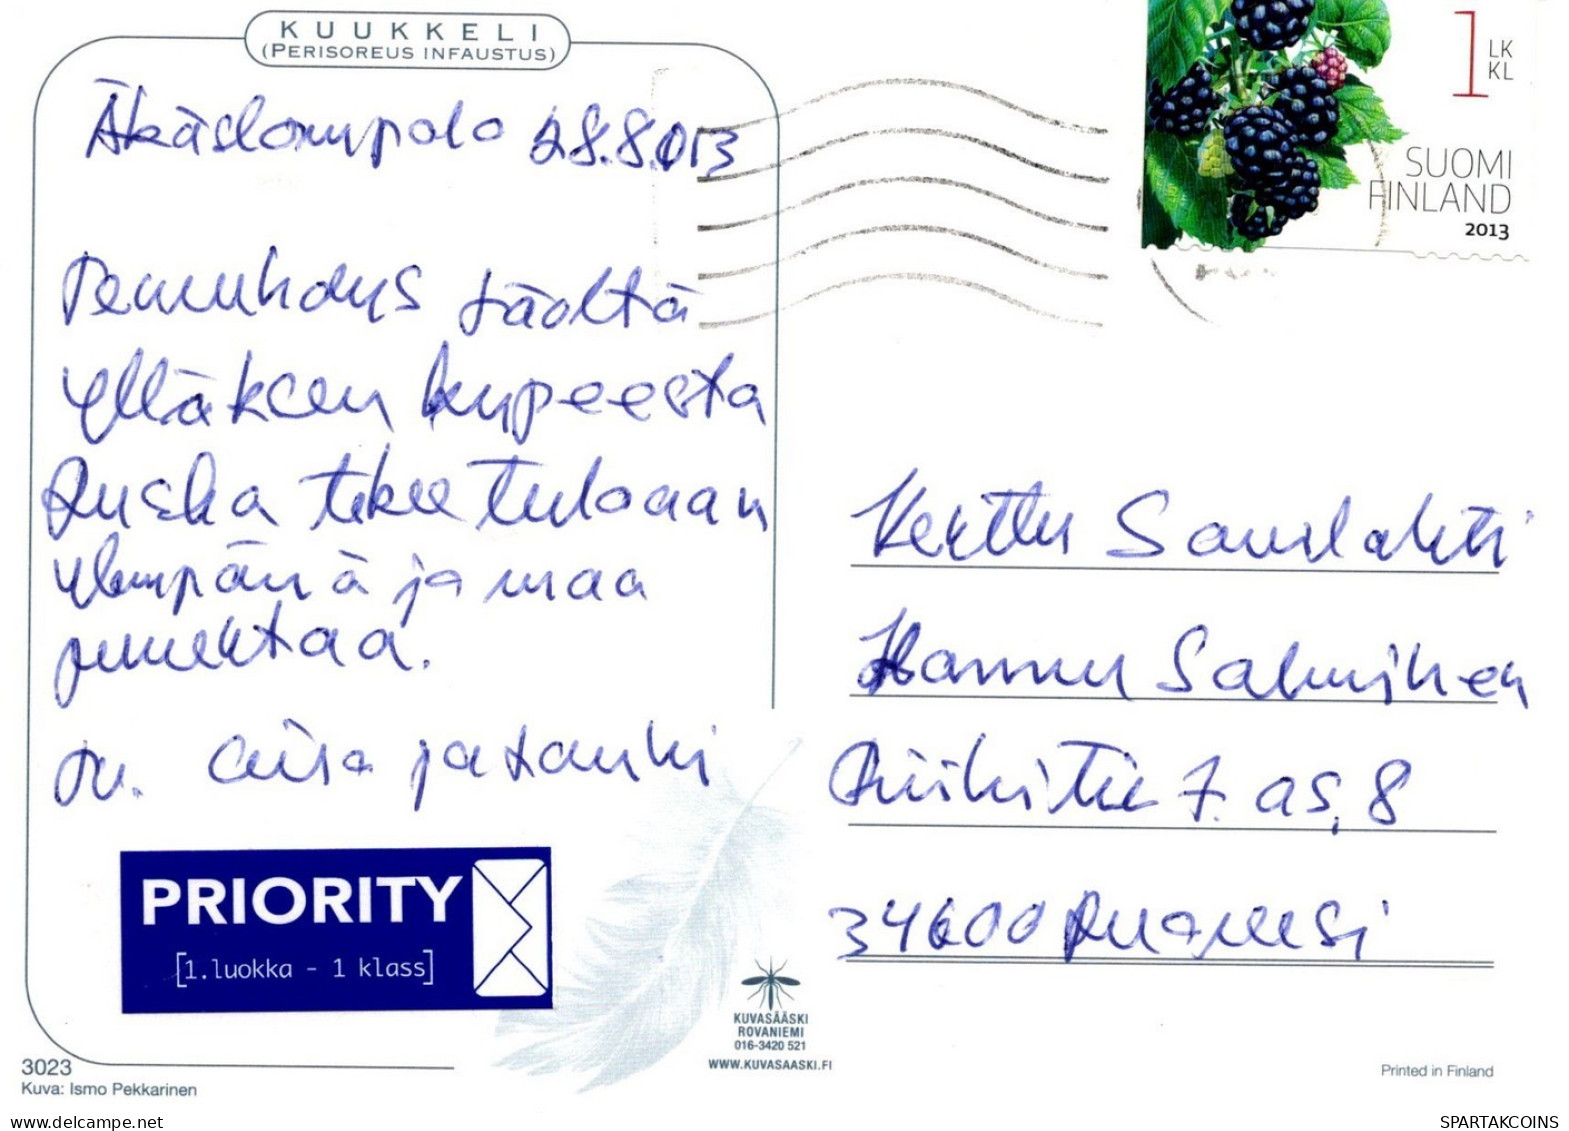 KUUKKELI
(PERISOREUS INFAUSTUS)
Äkäslompolo 28.8.013
Terveuhdys täältä
Ylläksen kupeesta
Ruska tekee tuloaan
ylempänä ja maa
punertaa.
tv. Aira ja tauski
1 LK
KL
SUOMI
FINLAND
2013
Kerttu Saurlahti
Hannu Salminen
Riihitie 7. as, 8
34600 Ruovesi
PRIORITY
[1.luokka - 1 klass]
KUVASÄÄSKI
ROVANIEMI
016-3420 521
WWW.KUVASAASKI.FI
3023
Kuva: Ismo Pekkarinen
Printed in Finland
www.delcampe.net
SPARTAKCOINS